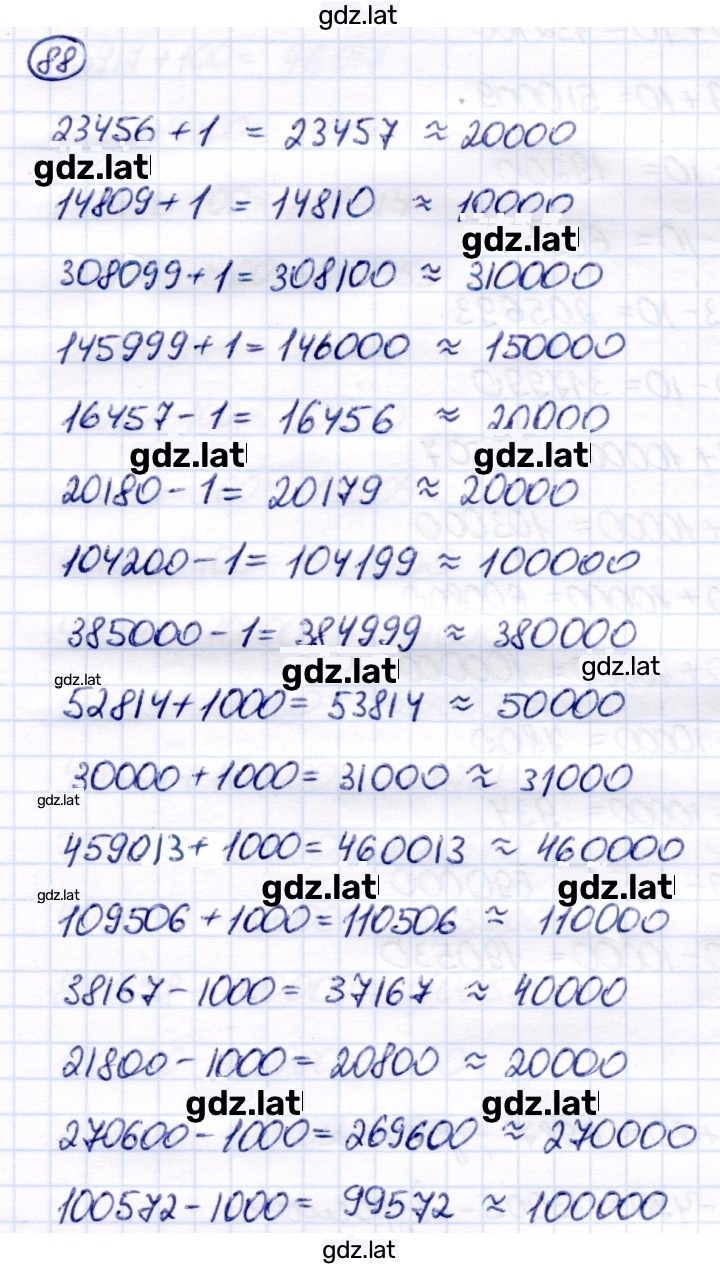 gdz.lat
88
23456 + 1 = 23457 ≈ 20000
gdz.lat
14809 + 1 = 14810 ≈ 10000
gdz.lat
308099 + 1 = 308100 ≈ 310000
145999 + 1 = 146000 ≈ 150000
16457 - 1 = 16456 ≈ 20000
gdz.lat gdz.lat
20180 - 1 = 20179 ≈ 20000
104200 - 1 = 104199 ≈ 100000
385000 - 1 = 384999 ≈ 380000
gdz.lat gdz.lat gdz.lat
52814 + 1000 = 53814 ≈ 50000
30000 + 1000 = 31000 ≈ 31000
gdz.lat
459013 + 1000 = 460013 ≈ 460000
gdz.lat gdz.lat gdz.lat
109506 + 1000 = 110506 ≈ 110000
38167 - 1000 = 37167 ≈ 40000
21800 - 1000 = 20800 ≈ 20000
gdz.lat gdz.lat
270600 - 1000 = 269600 ≈ 270000
100572 - 1000 = 99572 ≈ 100000
gdz.lat